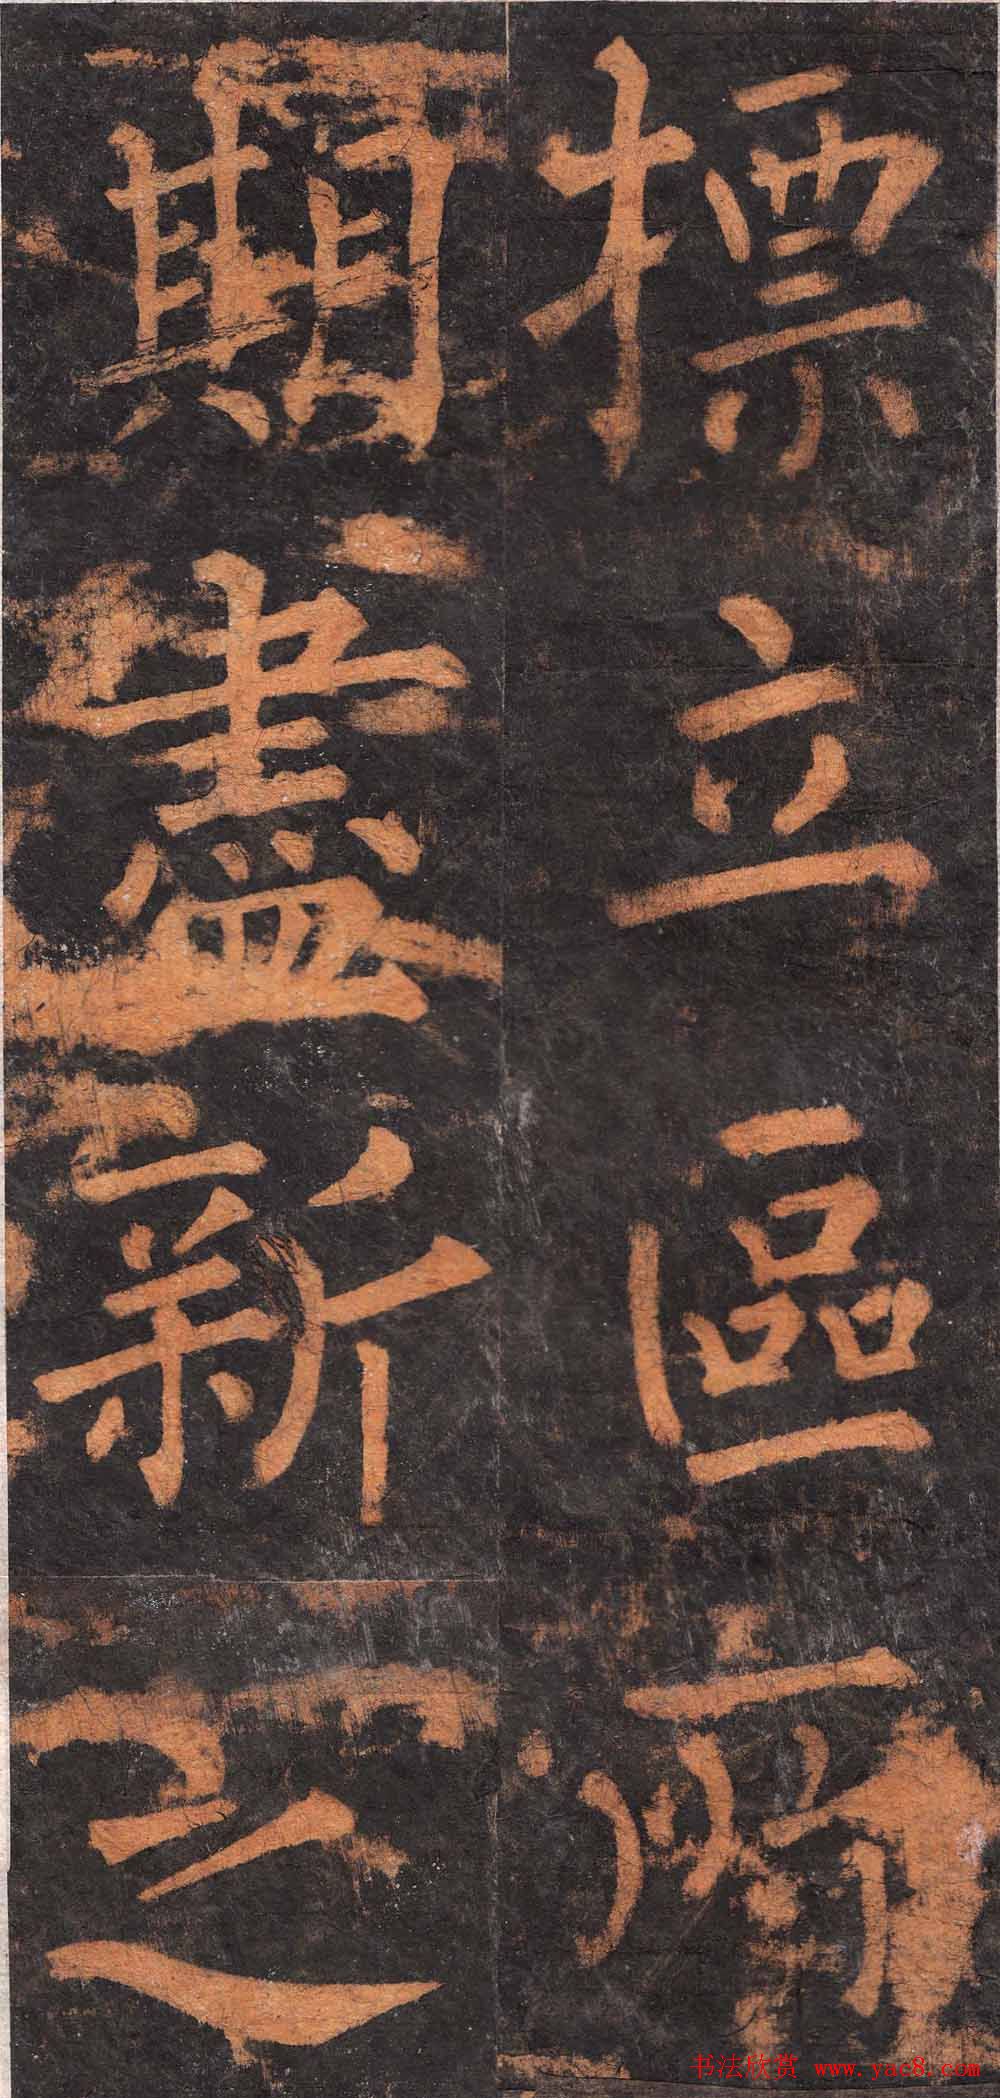 摽立區
期盡新之
书法欣赏 www.yac8.com